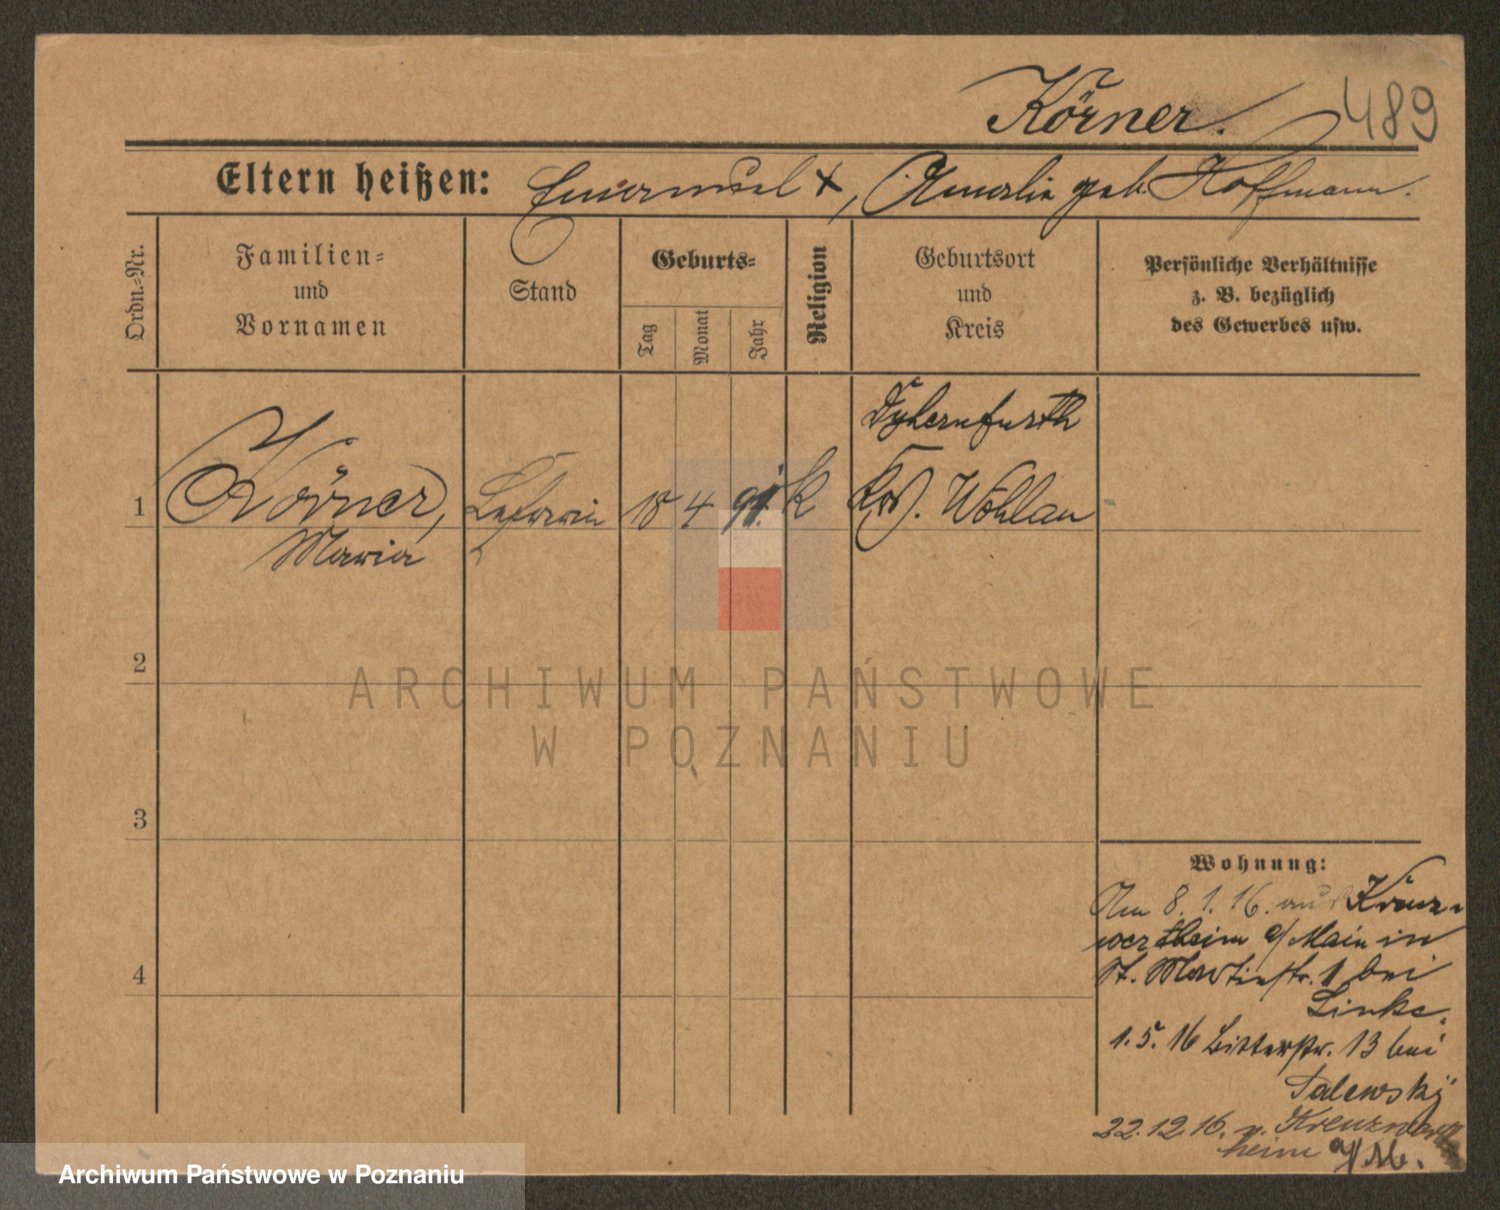 Körner. 489
Eltern heißen: Emanuel +, Amalie geb. Hoffmann.
Ordn.-Nr.
Familien-
und
Vornamen
Stand
Geburts-
Tag
Monat
Jahr
Religion
Geburtsort
und
Kreis
Persönliche Verhältnisse
z. B. bezüglich
des Gewerbes usw.
Dyhernfurth
1 Körner, Lehrerin 18 4 91. k Krs. Wohlau
Maria
2
ARCHIWUM PAŃSTWOWE
W POZNANIU
3
4
Wohnung:
Am 8. 1. 16. aus Kreuz-
wertheim a/Main in
St. Martinstr. 1 bei
Linke.
1. 5. 16 Bitterstr. 13 bei
Salewsky
22.12.16. n. Kreuzwert
heim a/M.
Archiwum Państwowe w Poznaniu